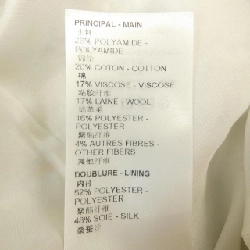 PRINCIPAL - MAIN
主料
POLYAMIDE -
POLYAMIDE
20% COTON - COTTON
棉
17% VISCOSE - VISCOSE
粘胶纤维
17% LAINE - WOOL
16% POLYESTER -
POLYESTER
聚酯纤维
4% AUTRES FIBRES -
OTHER FIBERS
其他纤维
DOUBLURE - LINING
52% POLYESTER -
POLYESTER
聚酯纤维
48% SOIE - SILK
桑蚕丝